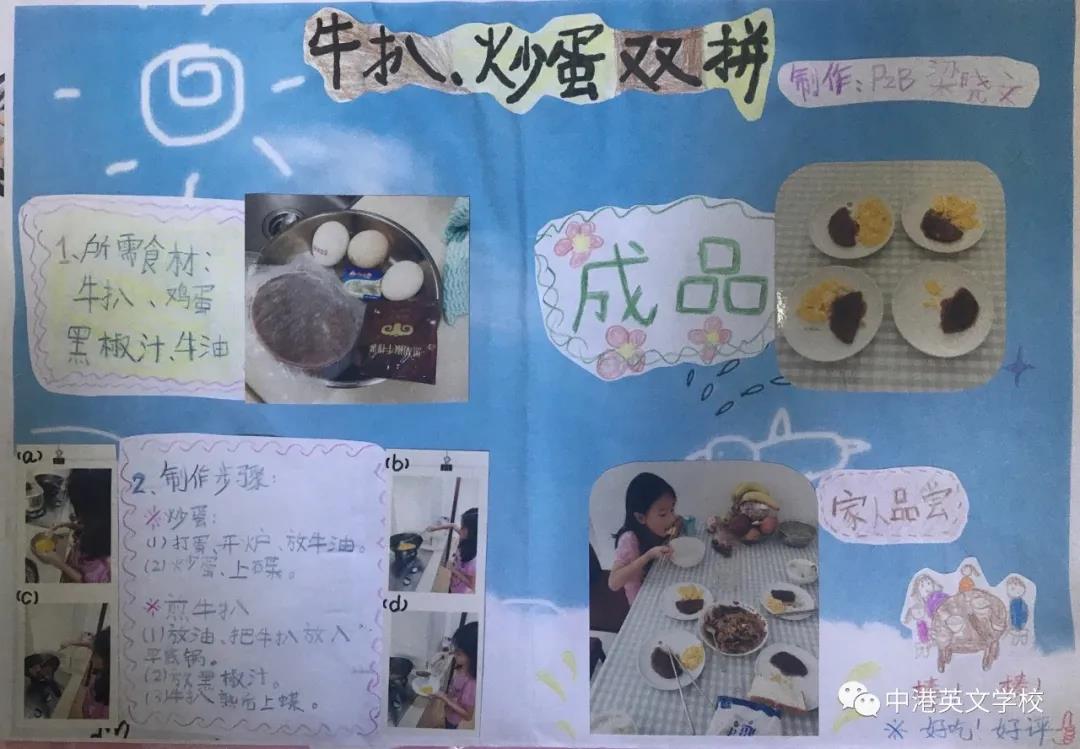 牛扒、炒蛋双拼
制作：P2B 梁晓文
1、所需食材：
牛扒、鸡蛋
黑椒汁、牛油
成品
(a)
(b)
(c)
(d)
2、制作步骤：
※炒蛋：
(1) 打蛋、开炉、放牛油。
(2) 炒蛋、上碟。
※煎牛扒
(1) 放油、把牛扒放入
平底锅。
(2) 放黑椒汁。
(3) 牛扒熟后上碟。
家人品尝
棒！棒！
※ 好吃！好评
中港英文学校